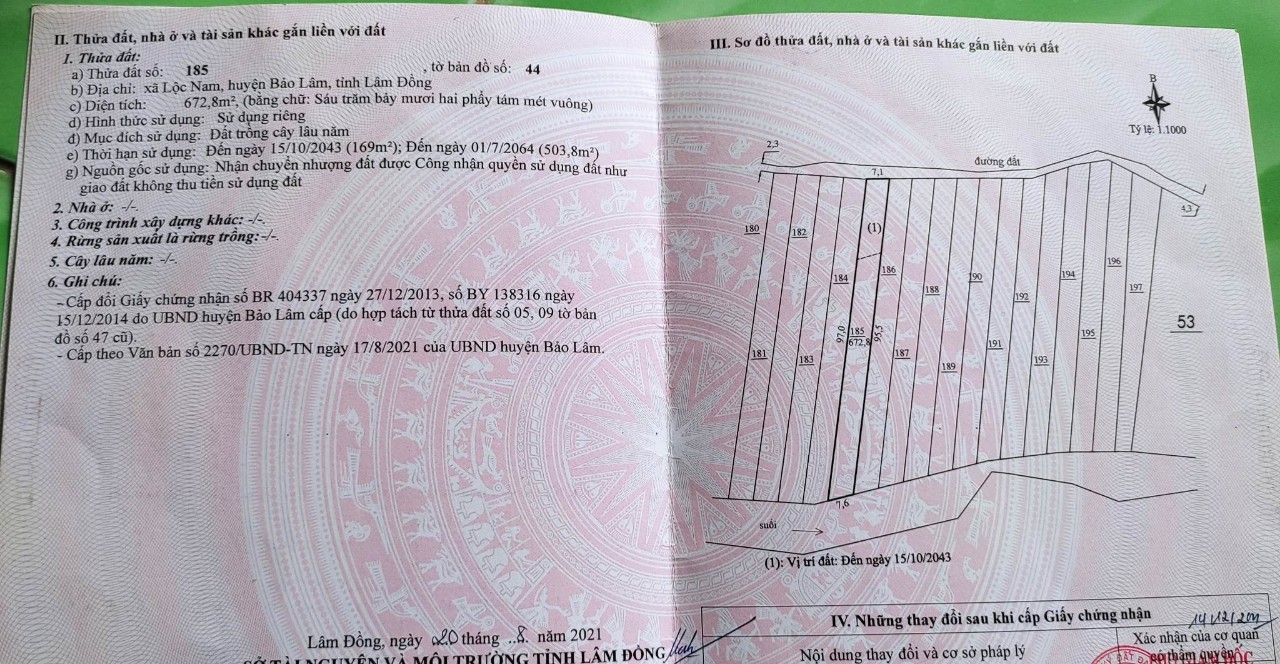 II. Thửa đất, nhà ở và tài sản khác gắn liền với đất
1. Thửa đất:
a) Thửa đất số: 185 , tờ bản đồ số: 44
b) Địa chỉ: xã Lộc Nam, huyện Bảo Lâm, tỉnh Lâm Đồng
c) Diện tích: 672,8m², (bằng chữ: Sáu trăm bảy mươi hai phẩy tám mét vuông)
d) Hình thức sử dụng: Sử dụng riêng
đ) Mục đích sử dụng: Đất trồng cây lâu năm
e) Thời hạn sử dụng: Đến ngày 15/10/2043 (169m²); Đến ngày 01/7/2064 (503,8m²)
g) Nguồn gốc sử dụng: Nhận chuyển nhượng đất được Công nhận quyền sử dụng đất như
giao đất không thu tiền sử dụng đất
2. Nhà ở: -/-.
3. Công trình xây dựng khác: -/-.
4. Rừng sản xuất là rừng trồng: -/-.
5. Cây lâu năm: -/-.
6. Ghi chú:
- Cấp đổi Giấy chứng nhận số BR 404337 ngày 27/12/2013, số BY 138316 ngày
15/12/2014 do UBND huyện Bảo Lâm cấp (do hợp tách từ thửa đất số 05, 09 tờ bản
đồ số 47 cũ).
- Cấp theo Văn bản số 2270/UBND-TN ngày 17/8/2021 của UBND huyện Bảo Lâm.
Lâm Đồng, ngày 20 tháng 8 năm 2021
SỞ TÀI NGUYÊN VÀ MÔI TRƯỜNG TỈNH LÂM ĐỒNG
III. Sơ đồ thửa đất, nhà ở và tài sản khác gắn liền với đất
B
Tỷ lệ: 1:1000
2,3
đường đất
7,1
4,3
180
182
(1)
184
186
188
190
192
194
196
197
53
181
183
97,0
185
672,8
95,5
187
189
191
193
195
7,6
suối
(1): Vị trí đất: Đến ngày 15/10/2043
IV. Những thay đổi sau khi cấp Giấy chứng nhận
Nội dung thay đổi và cơ sở pháp lý
Xác nhận của cơ quan
có thẩm quyền